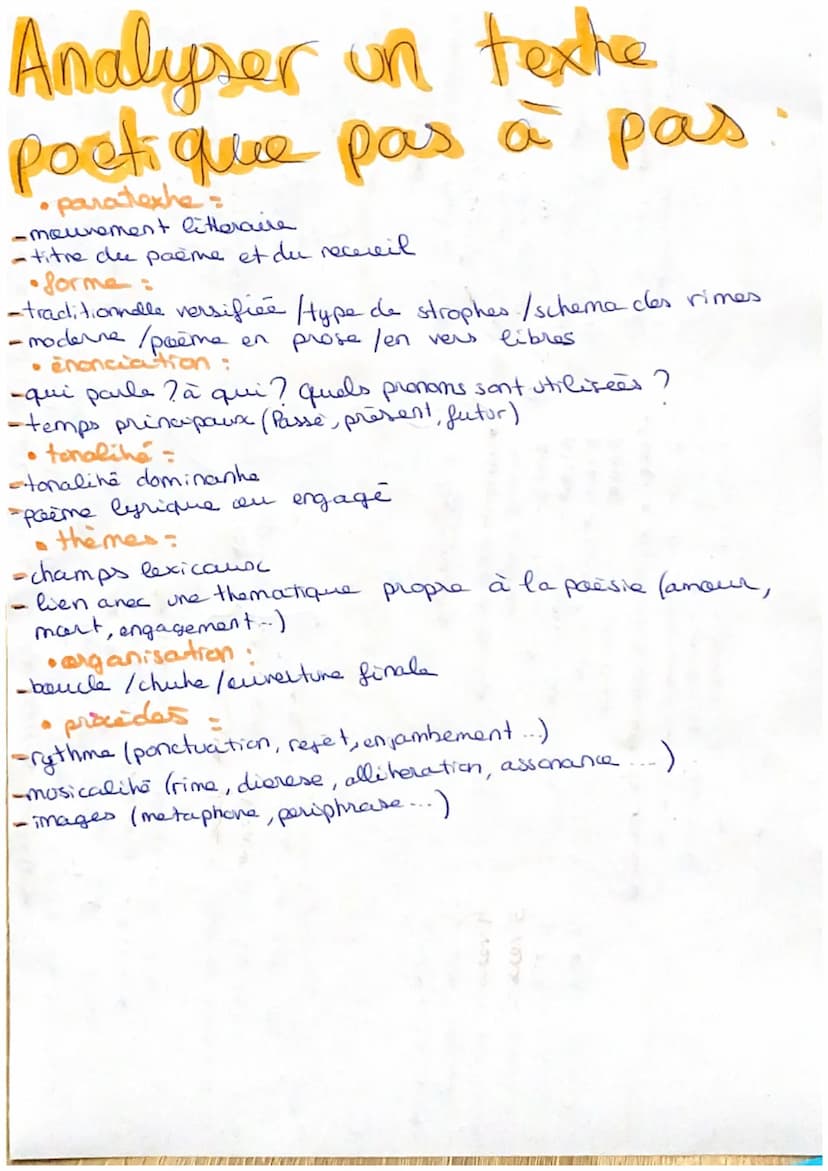 Analyser un texte
poetique pas à pas :
• paratexte :
- mouvement litteraire
- titre du poème et du recueil
• forme :
- traditionnelle versifiée / type de strophes / schema des rimes
- moderne / poème en prose / en vers libres
• énonciation :
- qui parle ? à qui ? quels pronoms sont utilisées ?
- temps principaux (Passé, présent, futur)
• tonalité :
- tonalité dominante
- poème lyrique ou engagé
• thèmes :
- champs lexicaux
- lien avec une thematique propre à la poèsie (amour,
mort, engagement...)
• organisation :
- boucle / chute / ouverture finale
• procédés :
- rythme (ponctuation, rejet, enjambement ...)
- musicalité (rime, dierese, alliteration, assonance ...)
- images (metaphore, periphrase ...)